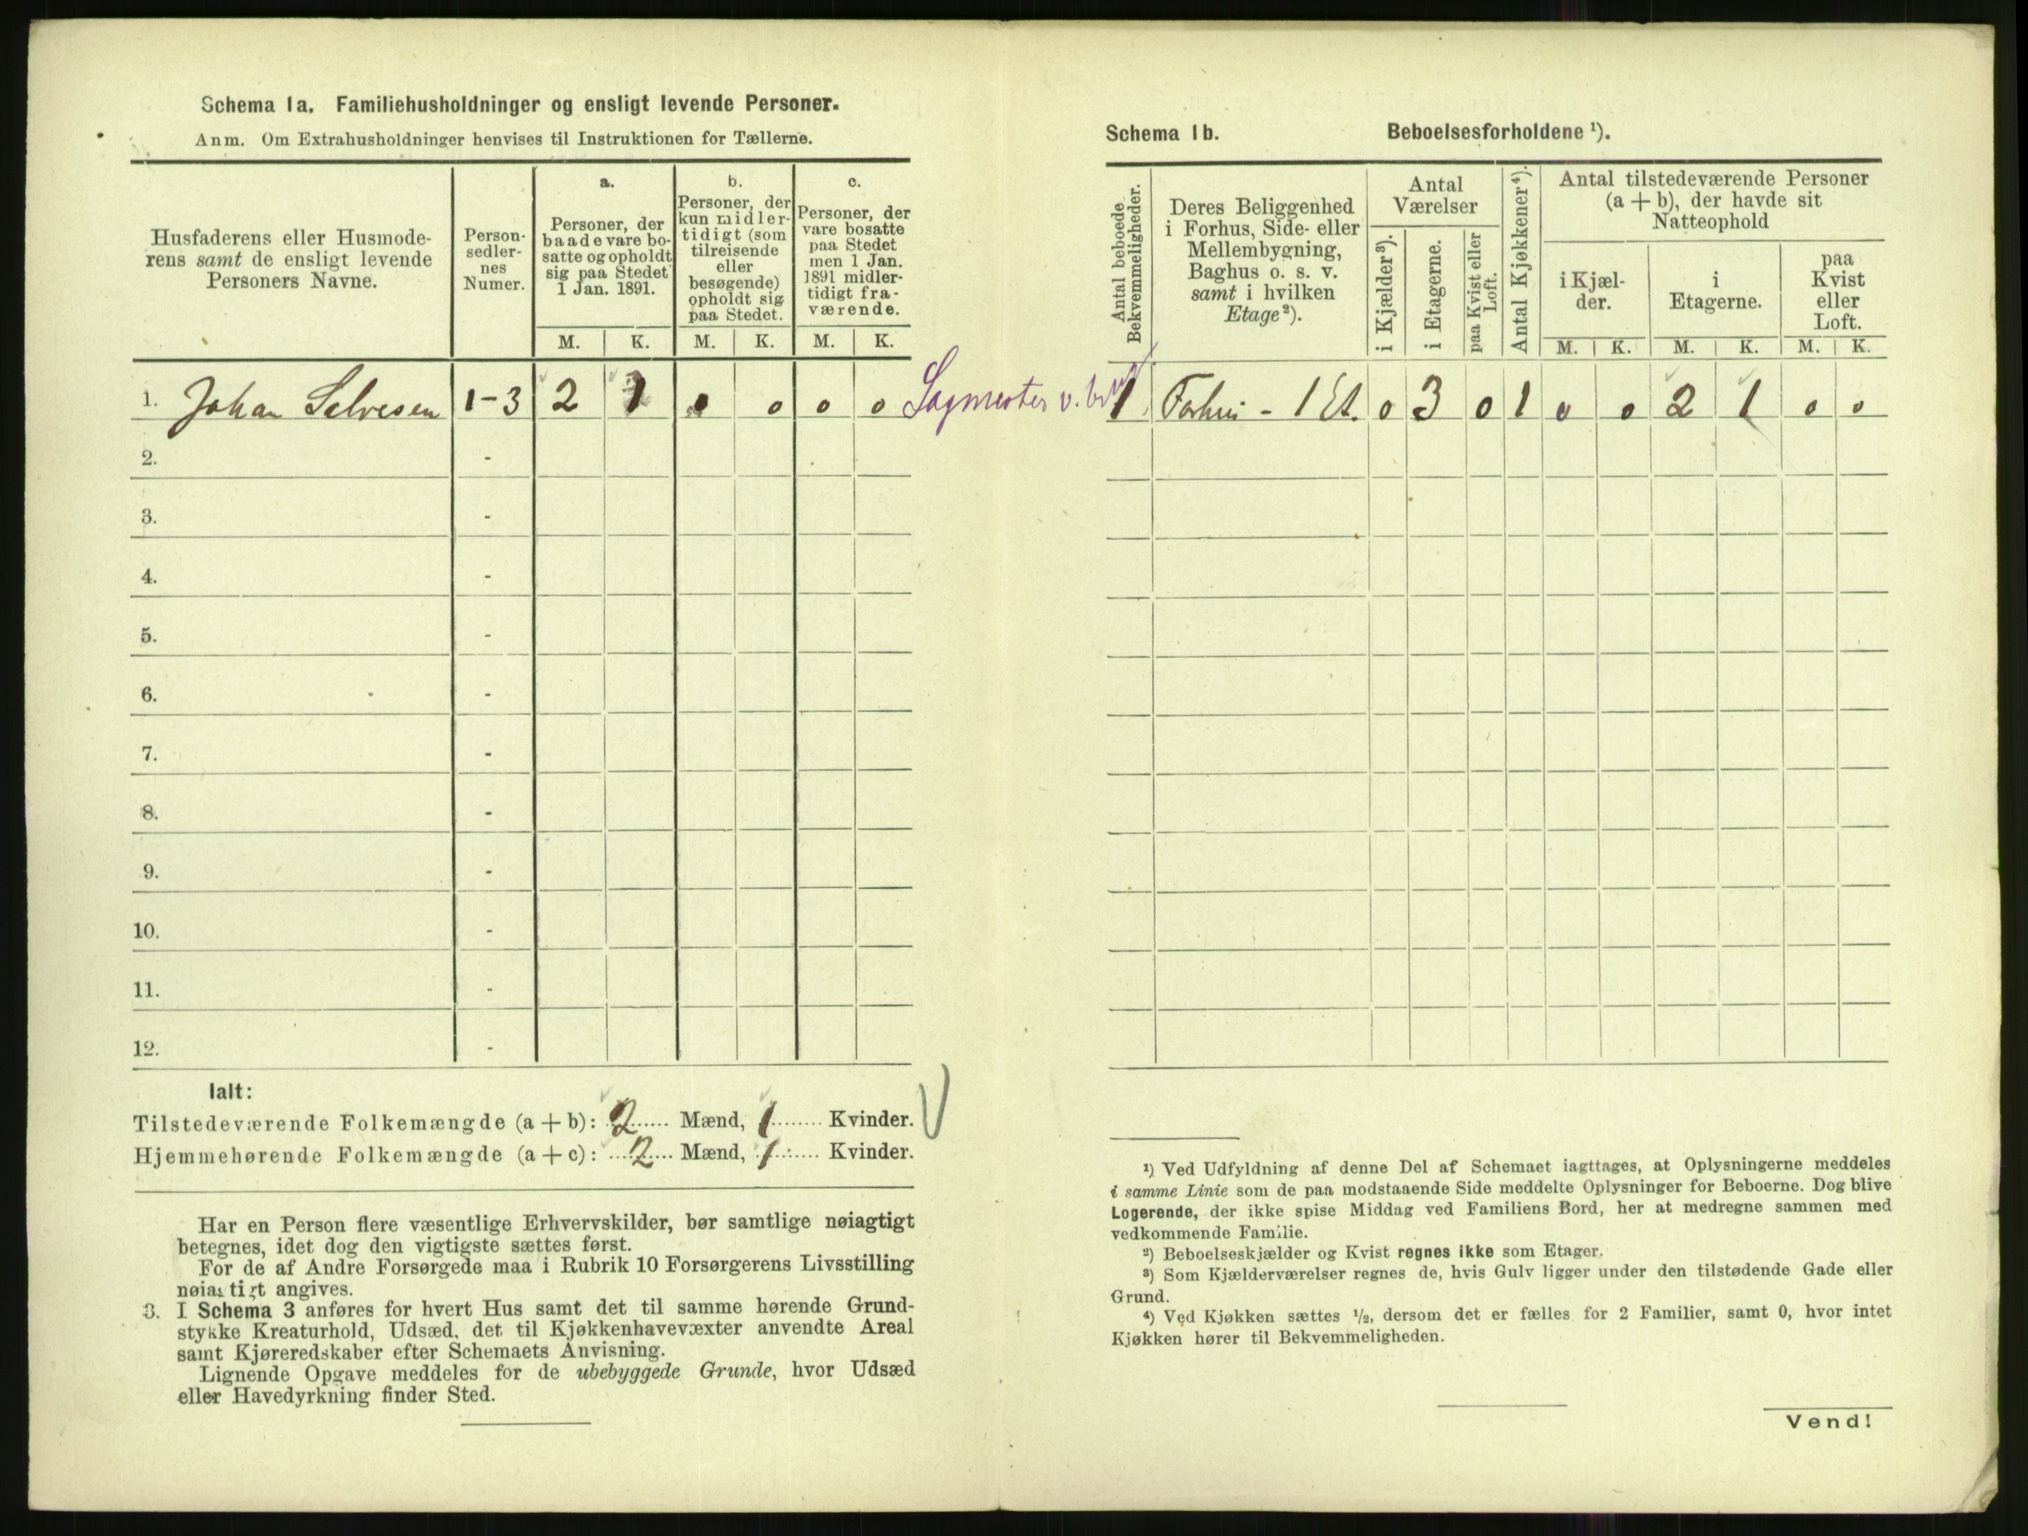 Schema 1a. Familiehusholdninger og ensligt levende Personer.
Anm. Om Extrahusholdninger henvises til Instruktionen for Tællerne.
Husfaderens eller Husmode-
rens samt de ensligt levende
Personers Navne.
Person-
sedler-
nes
Numer.
a.
Personer, der
baade vare bo-
satte og opholdt
sig paa Stedet
1 Jan. 1891.
b.
Personer, der
kun midler-
tidigt (som
tilreisende
eller
besøgende)
opholdt sig
paa Stedet.
c.
Personer, der
vare bosatte
paa Stedet
men 1 Jan.
1891 midler-
tidigt fra-
værende.
M. K. M. K. M. K.
1. Johan Salvesen 1-3 2 1 0 0 0 0 Sagmester v. brug
2. -
3. -
4. -
5. -
6. -
7. -
8. -
9. -
10. -
11. -
12. -
Ialt:
Tilstedeværende Folkemængde (a + b): 2 Mænd, 1 Kvinder.
Hjemmehørende Folkemængde (a + c): 2 Mænd, 1 Kvinder.
Har en Person flere væsentlige Erhvervskilder, bør samtlige nøiagtigt
betegnes, idet dog den vigtigste sættes først.
For de af Andre Forsørgede maa i Rubrik 10 Forsørgerens Livsstilling
nøiagtigt angives.
3. I Schema 3 anføres for hvert Hus samt det til samme hørende Grund-
stykke Kreaturhold, Udsæd, det til Kjøkkenhavevæxter anvendte Areal
samt Kjøreredskaber efter Schemaets Anvisning.
Lignende Opgave meddeles for de ubebyggede Grunde, hvor Udsæd
eller Havedyrkning finder Sted.
Schema 1b. Beboelsesforholdene ¹).
Antal beboede
Bekvemmeligheder.
Deres Beliggenhed
i Forhus, Side- eller
Mellembygning,
Baghus o. s. v.
samt i hvilken
Etage²).
Antal
Værelser
i Kjælder³).
i Etagerne.
paa Kvist eller
Loft.
Antal Kjøkkener⁴).
Antal tilstedeværende Personer
(a + b), der havde sit
Natteophold
i Kjæl-
der.
i
Etagerne.
paa
Kvist
eller
Loft.
M. K. M. K. M. K.
1 Forhus - 1 Et. 0 3 0 1 0 0 2 1 0 0
¹) Ved Udfyldning af denne Del af Schemaet iagttages, at Oplysningerne meddeles
i samme Linie som de paa modstaaende Side meddelte Oplysninger for Beboerne. Dog blive
Logerende, der ikke spise Middag ved Familiens Bord, her at medregne sammen med
vedkommende Familie.
²) Beboelseskjælder og Kvist regnes ikke som Etager.
³) Som Kjælderværelser regnes de, hvis Gulv ligger under den tilstødende Gade eller
Grund.
⁴) Ved Kjøkken sættes ½, dersom det er fælles for 2 Familier, samt 0, hvor intet
Kjøkken hører til Bekvemmeligheden.
Vend!